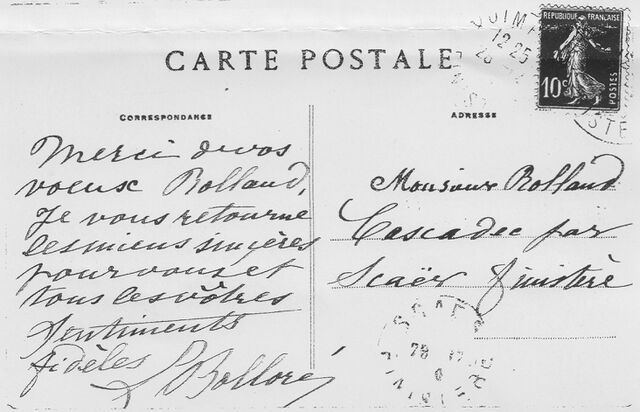 CARTE POSTALE
RÉPUBLIQUE FRANÇAISE
10c
POSTES
12 25
CORRESPONDANCE
ADRESSE
Merci de vos
voeux Rolland,
Je vous retourne
les miens sincères
pour vous et
tous les vôtres
Sentiments
fidèles
Bolloré
Monsieur Rolland
Cascadec par
Scaër finistère
SCAER